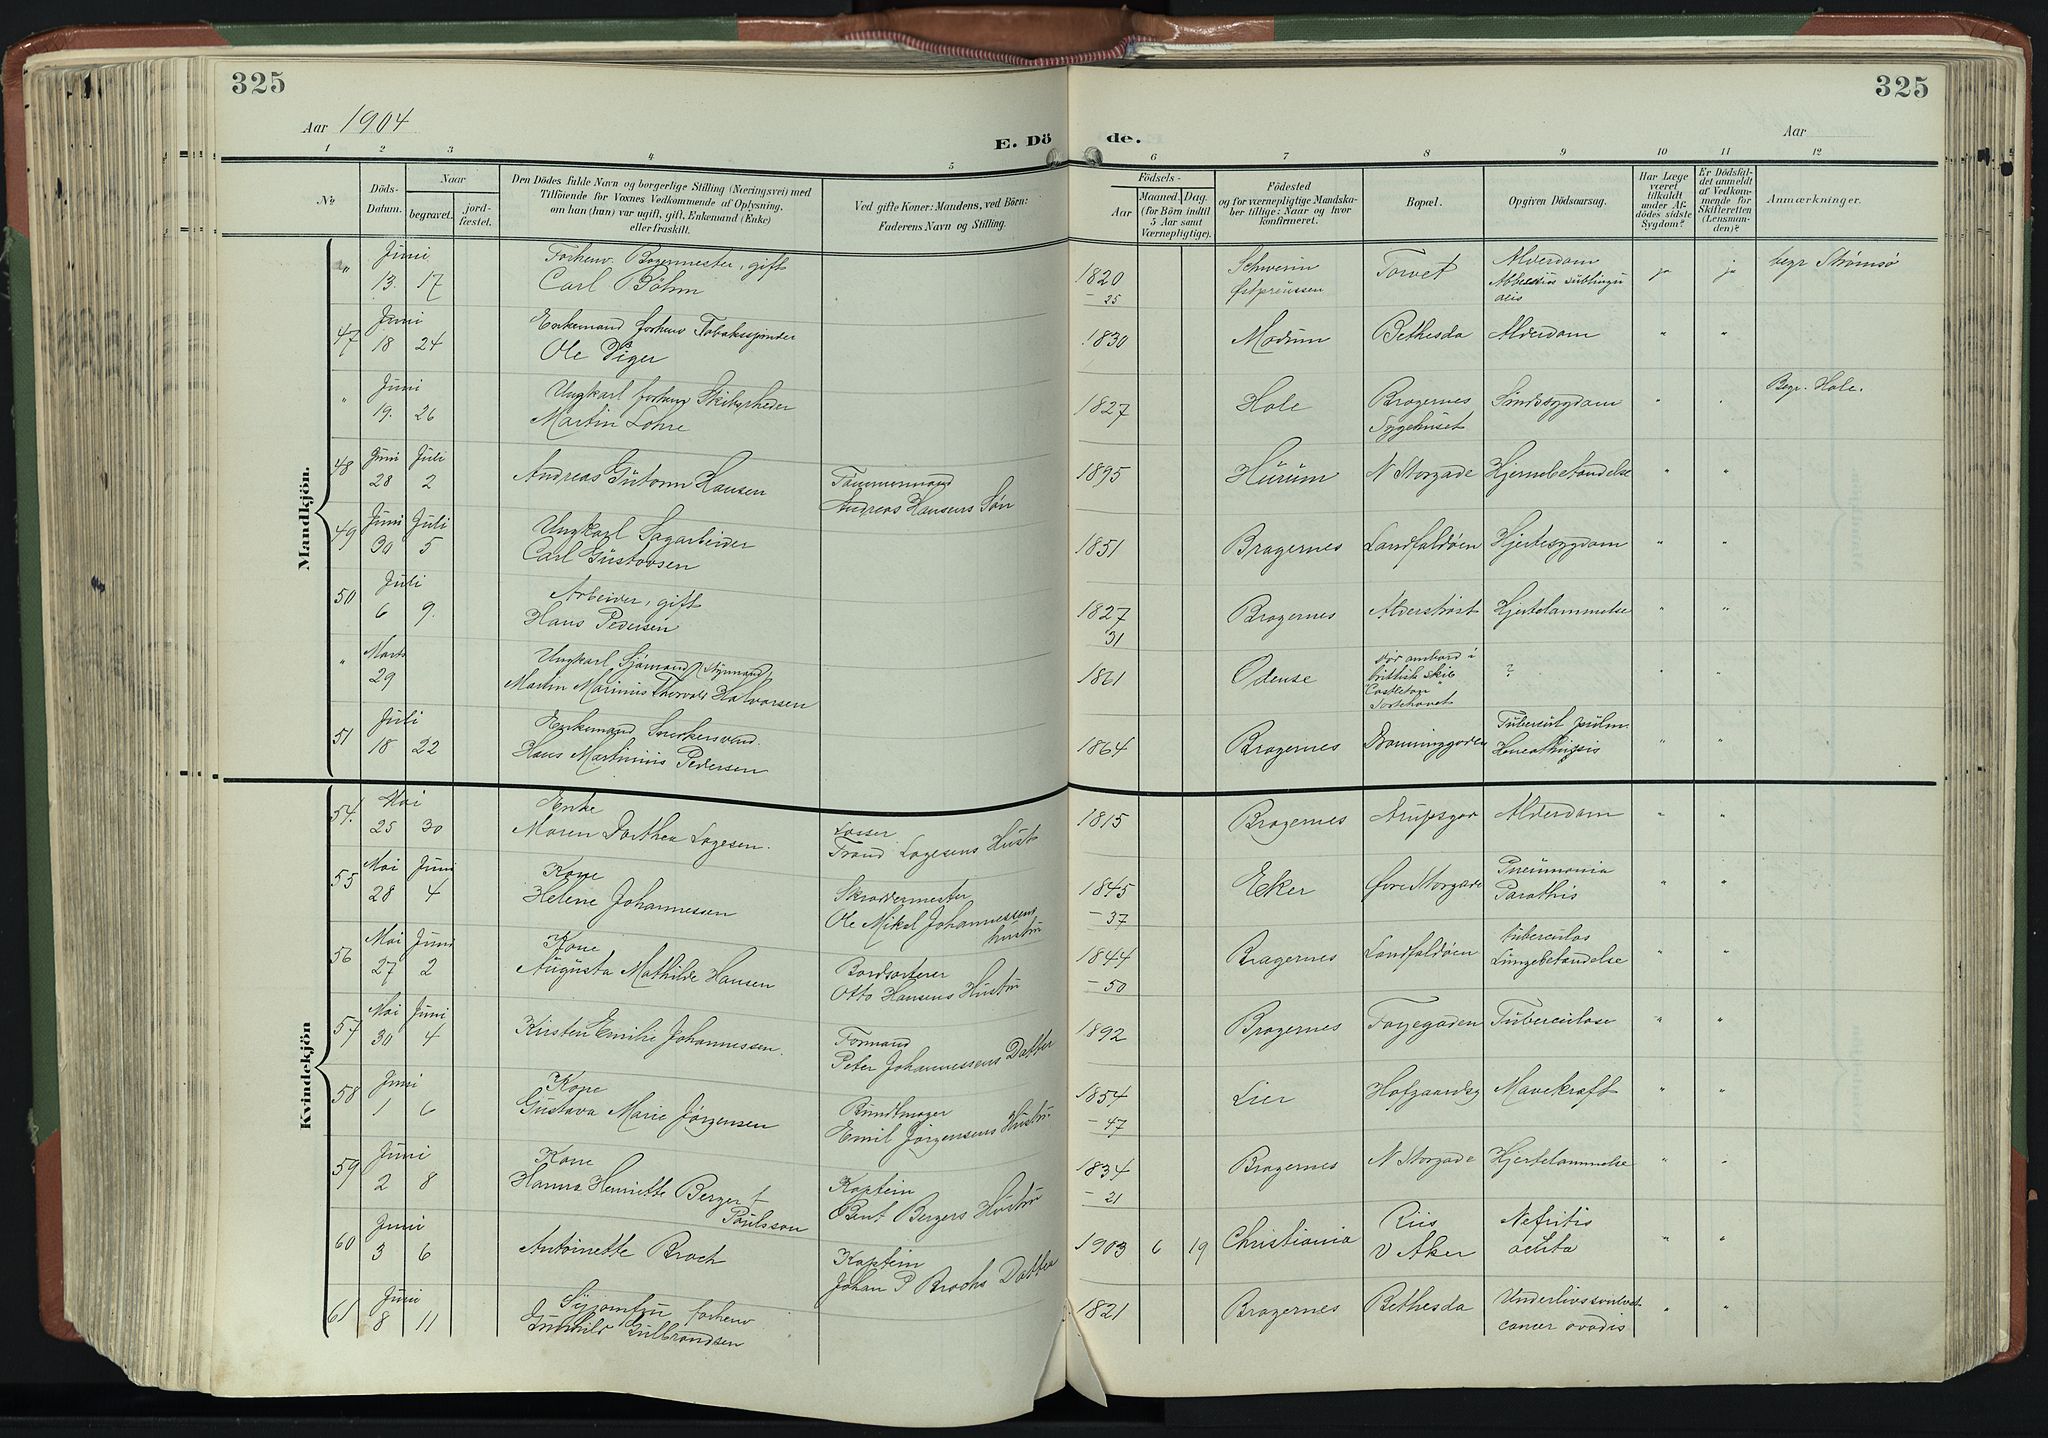 325
325
Aar 1904
E. Dö de.
Aar
1 2 3 4 5 6 7 8 9 10 11 12
№
Döds-
Datum.
Naar
begravet.
jord-
fæstet.
Den Dödes fulde Navn og borgerlige Stilling (Næringsvei) med
Tilföiende for Voxnes Vedkommende af Oplysning,
om han (hun) var ugift, gift, Enkemand (Enke)
eller fraskilt.
Ved gifte Koner: Mandens, ved Börn:
Faderens Navn og Stilling.
Födsels-
Aar
Maaned. Dag.
(for Börn indtil
5 Aar samt
Værnepligtige).
Födested
og for værnepligtige Mandska-
ber tillige: Naar og hvor
konfirmeret.
Bopæl.
Opgiven Dödsaarsag.
Har Læge
været
tilkaldt
under Af-
dödes sidste
Sygdom?
Er Dödsfal-
det anmeldt
af Vedkom-
mende for
Skifteretten
(Lensman-
den)?
Anmærkninger.
Mandkjön.
" Juni 13. 17
Forhenv. Bagermester, gift
Carl Böhm
1820
- 25
Schwerin
Østpreussen
Torvet
Alderdom
ja ja
begr Strømsø
47 Juni 18 24
Enkemand forhenv Tobaksspinder
Ole Piger
1830 Modum Bethesda Alderdom " "
" Juni 19. 26
Ungkarl forhenv Skibsrheder
Martin Lohre
1827 Hole
Bragernes
Sygehuset
Sindssygdom "
Begr. Hole.
48 Juni 28 Juli 2
Andreas Gutorm Hansen
Tømmermand
Andreas Hansens Søn
1895 Hurum N Storgade Hjernebetændelse " "
49 Juni 30 Juli 5
Ungkarl Sagarbeider
Carl Gustavsen
1851 Bragernes Landfaldøen Hjertesygdom " "
50 Juli 6 9.
Arbeider, gift
Hans Pedersen
1827
31
Bragernes Alderstrøst Hjertelammelse " "
" Marts 29
Ungkarl Sjømand (Styrmand)
Martin Marinius Thorvald Halvorsen
1861 Odense
død ombord i
brittisk skib
"Castleton"
? " "
51 Juli 18 22
Enkemand Snekkersvend.
Hans Martinius Pedersen
1864 Bragernes Dronninggaden
Tubercul pulm.
" "
Kvindekjön
54. Mai 25 30
Enke
Maren Dorthea Lagesen.
Losser
Trond Lagesens Hust
1815 Bragernes Arupsgad Alderdom " "
55 Mai 28 Juni 4
Kone
Helene Johannessen
Skræddermester
Ole Mikal Johannessens
hustru
1845
- 37
Eker Øvre Storgade
Pneumonia
" "
56 Mai 27 Juni 2
Kone
Augusta Mathilde Hansen
Bordsorterer
Otto Hansens Hustru
1844
- 50
Bragernes Landfaldøen
tuberculos
Lungebetændelse
" "
57 Mai 30 Juni 4
Kirsten Emilie Johannessen.
Formand
Peter Johannessens Datter
1892 Bragernes Fayegaden Tuberculose " "
58 Juni 1 6
Kone
Gustava Marie Jørgensen
Buntmager
Emil Jørgensens Hustru
1854
- 47
Lier Hofgaardsg Mavekræft " "
59 Juni 2 8
Kone
Hanna Henriette Berger f
Paulsson
Kaptein
Bent Bergers Hustru
1834
- 21
Bragernes N Storgade Hjertelammelse " "
60 Juni 3 6
Antoinette Broch
Kaptein
Johan P Brochs Datter
1903 6 19 Christiania
Riis
V Aker
Nefritis
" "
61 Juni 8 11
Syjomfru forhenv
Gunhild Gulbrandsen
1821 Bragernes Bethesda
Underlivssvulst
cancer ovariis
" "